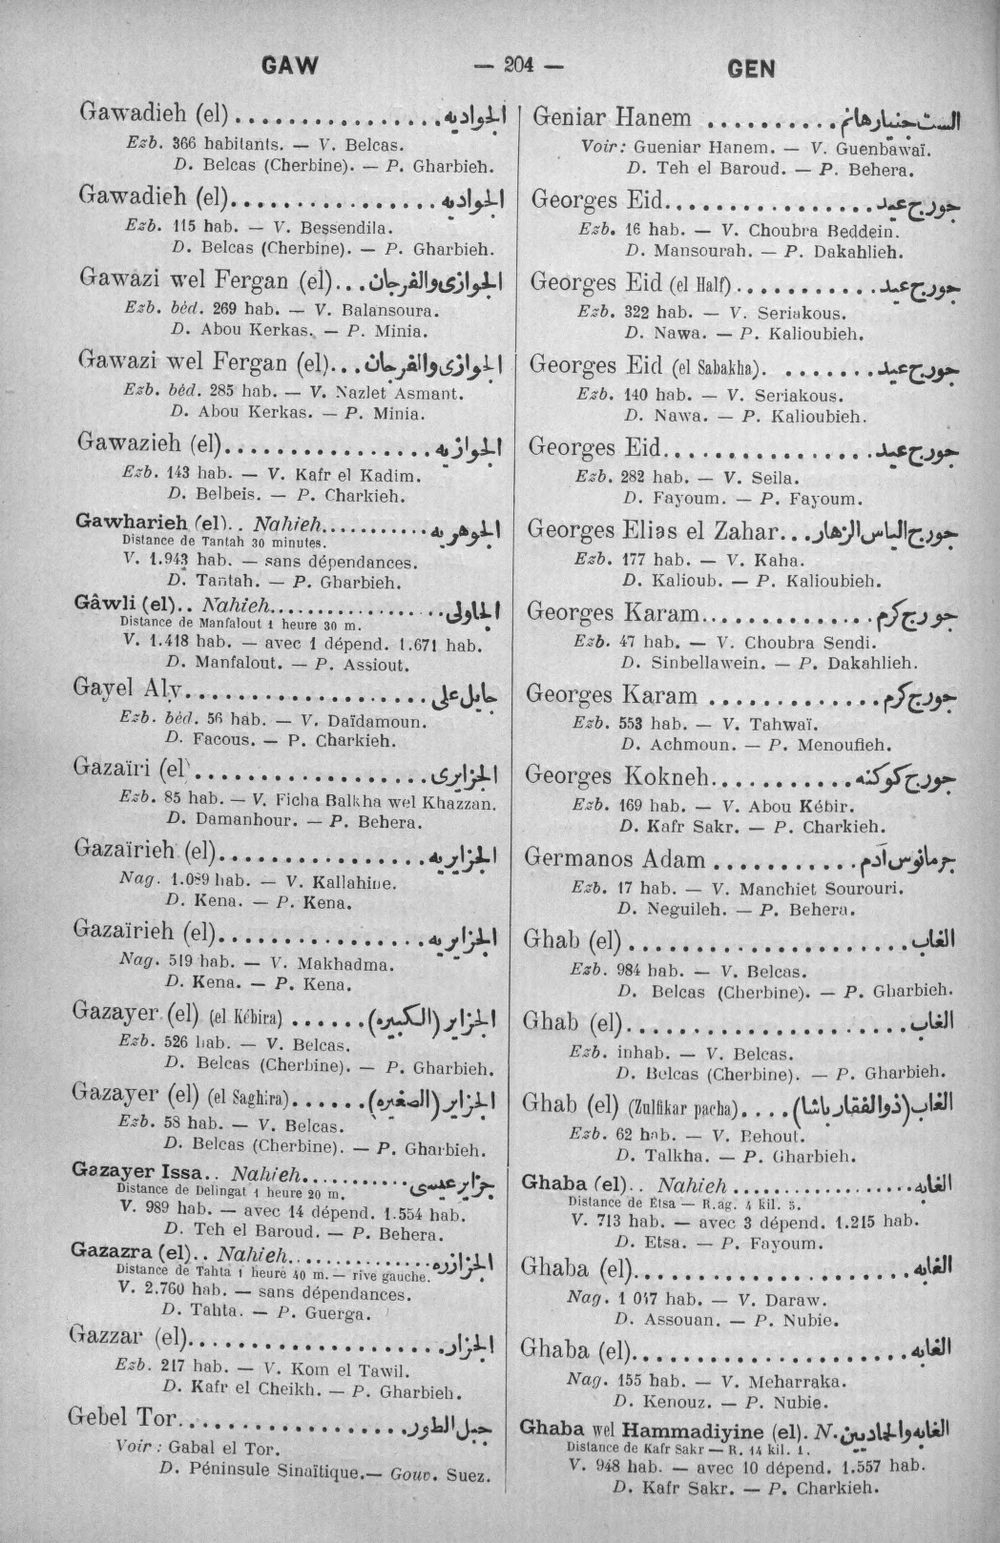 GAW — 204 — GEN
Gawadieh (el) ................ الجواديه
Ezb. 366 habitants. — V. Belcas.
D. Belcas (Cherbine). — P. Gharbieh.
Gawadieh (el)................ الجواديه
Ezb. 115 hab. — V. Bessendila.
D. Belcas (Cherbine). — P. Gharbieh.
Gawazi wel Fergan (el)... الجوازى والفرجان
Ezb. béd. 269 hab. — V. Balansoura.
D. Abou Kerkas. — P. Minia.
Gawazi wel Fergan (el)... الجوازى والفرجان
Ezb. béd. 285 hab. — V. Nazlet Asmant.
D. Abou Kerkas. — P. Minia.
Gawazieh (el)................ الجوازيه
Ezb. 143 hab. — V. Kafr el Kadim.
D. Belbeis. — P. Charkieh.
Gawharieh (el).. Nahieh.......... الجوهريه
Distance de Tantah 30 minutes.
V. 1.943 hab. — sans dépendances.
D. Tantah. — P. Gharbieh.
Gâwli (el).. Nahieh................ الجاولى
Distance de Manfalout 1 heure 30 m.
V. 1.418 hab. — avec 1 dépend. 1.671 hab.
D. Manfalout. — P. Assiout.
Gayel Aly................... جايل على
Ezb. béd. 56 hab. — V. Daïdamoun.
D. Facous. — P. Charkieh.
Gazaïri (el) .................. الجزايرى
Ezb. 85 hab. — V. Ficha Balkha wel Khazzan.
D. Damanhour. — P. Behera.
Gazaïrieh (el)................ الجزايريه
Nag. 1.089 hab. — V. Kallahine.
D. Kena. — P. Kena.
Gazaïrieh (el)................ الجزايريه
Nag. 519 hab. — V. Makhadma.
D. Kena. — P. Kena.
Gazayer (el) (el Kébira) ...... الجزاير (الكبيره)
Ezb. 526 hab. — V. Belcas.
D. Belcas (Cherbine). — P. Gharbieh.
Gazayer (el) (el Saghira)...... الجزاير (الصغيره)
Ezb. 58 hab. — V. Belcas.
D. Belcas (Cherbine). — P. Gharbieh.
Gazayer Issa.. Nahieh........... جزاير عيسى
Distance de Delingat 1 heure 20 m.
V. 989 hab. — avec 14 dépend. 1.554 hab.
D. Teh el Baroud. — P. Behera.
Gazazra (el).. Nahieh.............. الجزازره
Distance de Tahta 1 heure 40 m. — rive gauche.
V. 2.760 hab. — sans dépendances.
D. Tahta. — P. Guerga.
Gazzar (el)................... الجزار
Ezb. 217 hab. — V. Kom el Tawil.
D. Kafr el Cheikh. — P. Gharbieh.
Gebel Tor.................. جبل الطور
Voir : Gabal el Tor.
D. Péninsule Sinaïtique.— Gouv. Suez.
Geniar Hanem .......... الست جنيار هانم
Voir : Gueniar Hanem. — V. Guenbawaï.
D. Teh el Baroud. — P. Behera.
Georges Eid................ جورج عيد
Ezb. 16 hab. — V. Choubra Beddein.
D. Mansourah. — P. Dakahlieh.
Georges Eid (el Half) ........... جورج عيد
Ezb. 322 hab. — V. Seriakous.
D. Nawa. — P. Kalioubieh.
Georges Eid (el Sabakha). ....... جورج عيد
Ezb. 140 hab. — V. Seriakous.
D. Nawa. — P. Kalioubieh.
Georges Eid................ جورج عيد
Ezb. 282 hab. — V. Seila.
D. Fayoum. — P. Fayoum.
Georges Elias el Zahar... جورج الياس الزهار
Ezb. 177 hab. — V. Kaha.
D. Kalioub. — P. Kalioubieh.
Georges Karam.............. جورج كرم
Ezb. 47 hab. — V. Choubra Sendi.
D. Sinbellawein. — P. Dakahlieh.
Georges Karam ............. جورج كرم
Ezb. 553 hab. — V. Tahwaï.
D. Achmoun. — P. Menoufieh.
Georges Kokneh........... جورج كوكنه
Ezb. 169 hab. — V. Abou Kébir.
D. Kafr Sakr. — P. Charkieh.
Germanos Adam ........... جرمانوس آدم
Ezb. 17 hab. — V. Manchiet Sourouri.
D. Neguileh. — P. Behera.
Ghab (el) ..................... الغاب
Ezb. 984 hab. — V. Belcas.
D. Belcas (Cherbine). — P. Gharbieh.
Ghab (el)..................... الغاب
Ezb. inhab. — V. Belcas.
D. Belcas (Cherbine). — P. Gharbieh.
Ghab (el) (Zulfikar pacha).... الغاب (ذو الفقار باشا)
Ezb. 62 hab. — V. Behout.
D. Talkha. — P. Gharbieh.
Ghaba (el).. Nahieh .................. الغابه
Distance de Etsa — R.ag. 4 kil. 5.
V. 713 hab. — avec 3 dépend. 1.215 hab.
D. Etsa. — P. Fayoum.
Ghaba (el)..................... الغابه
Nag. 1 047 hab. — V. Daraw.
D. Assouan. — P. Nubie.
Ghaba (el)..................... الغابه
Nag. 155 hab. — V. Meharraka.
D. Kenouz. — P. Nubie.
Ghaba wel Hammadiyine (el). N. الغابه والحماديين
Distance de Kafr Sakr — R. 14 kil. 1.
V. 948 hab. — avec 10 dépend. 1.557 hab.
D. Kafr Sakr. — P. Charkieh.